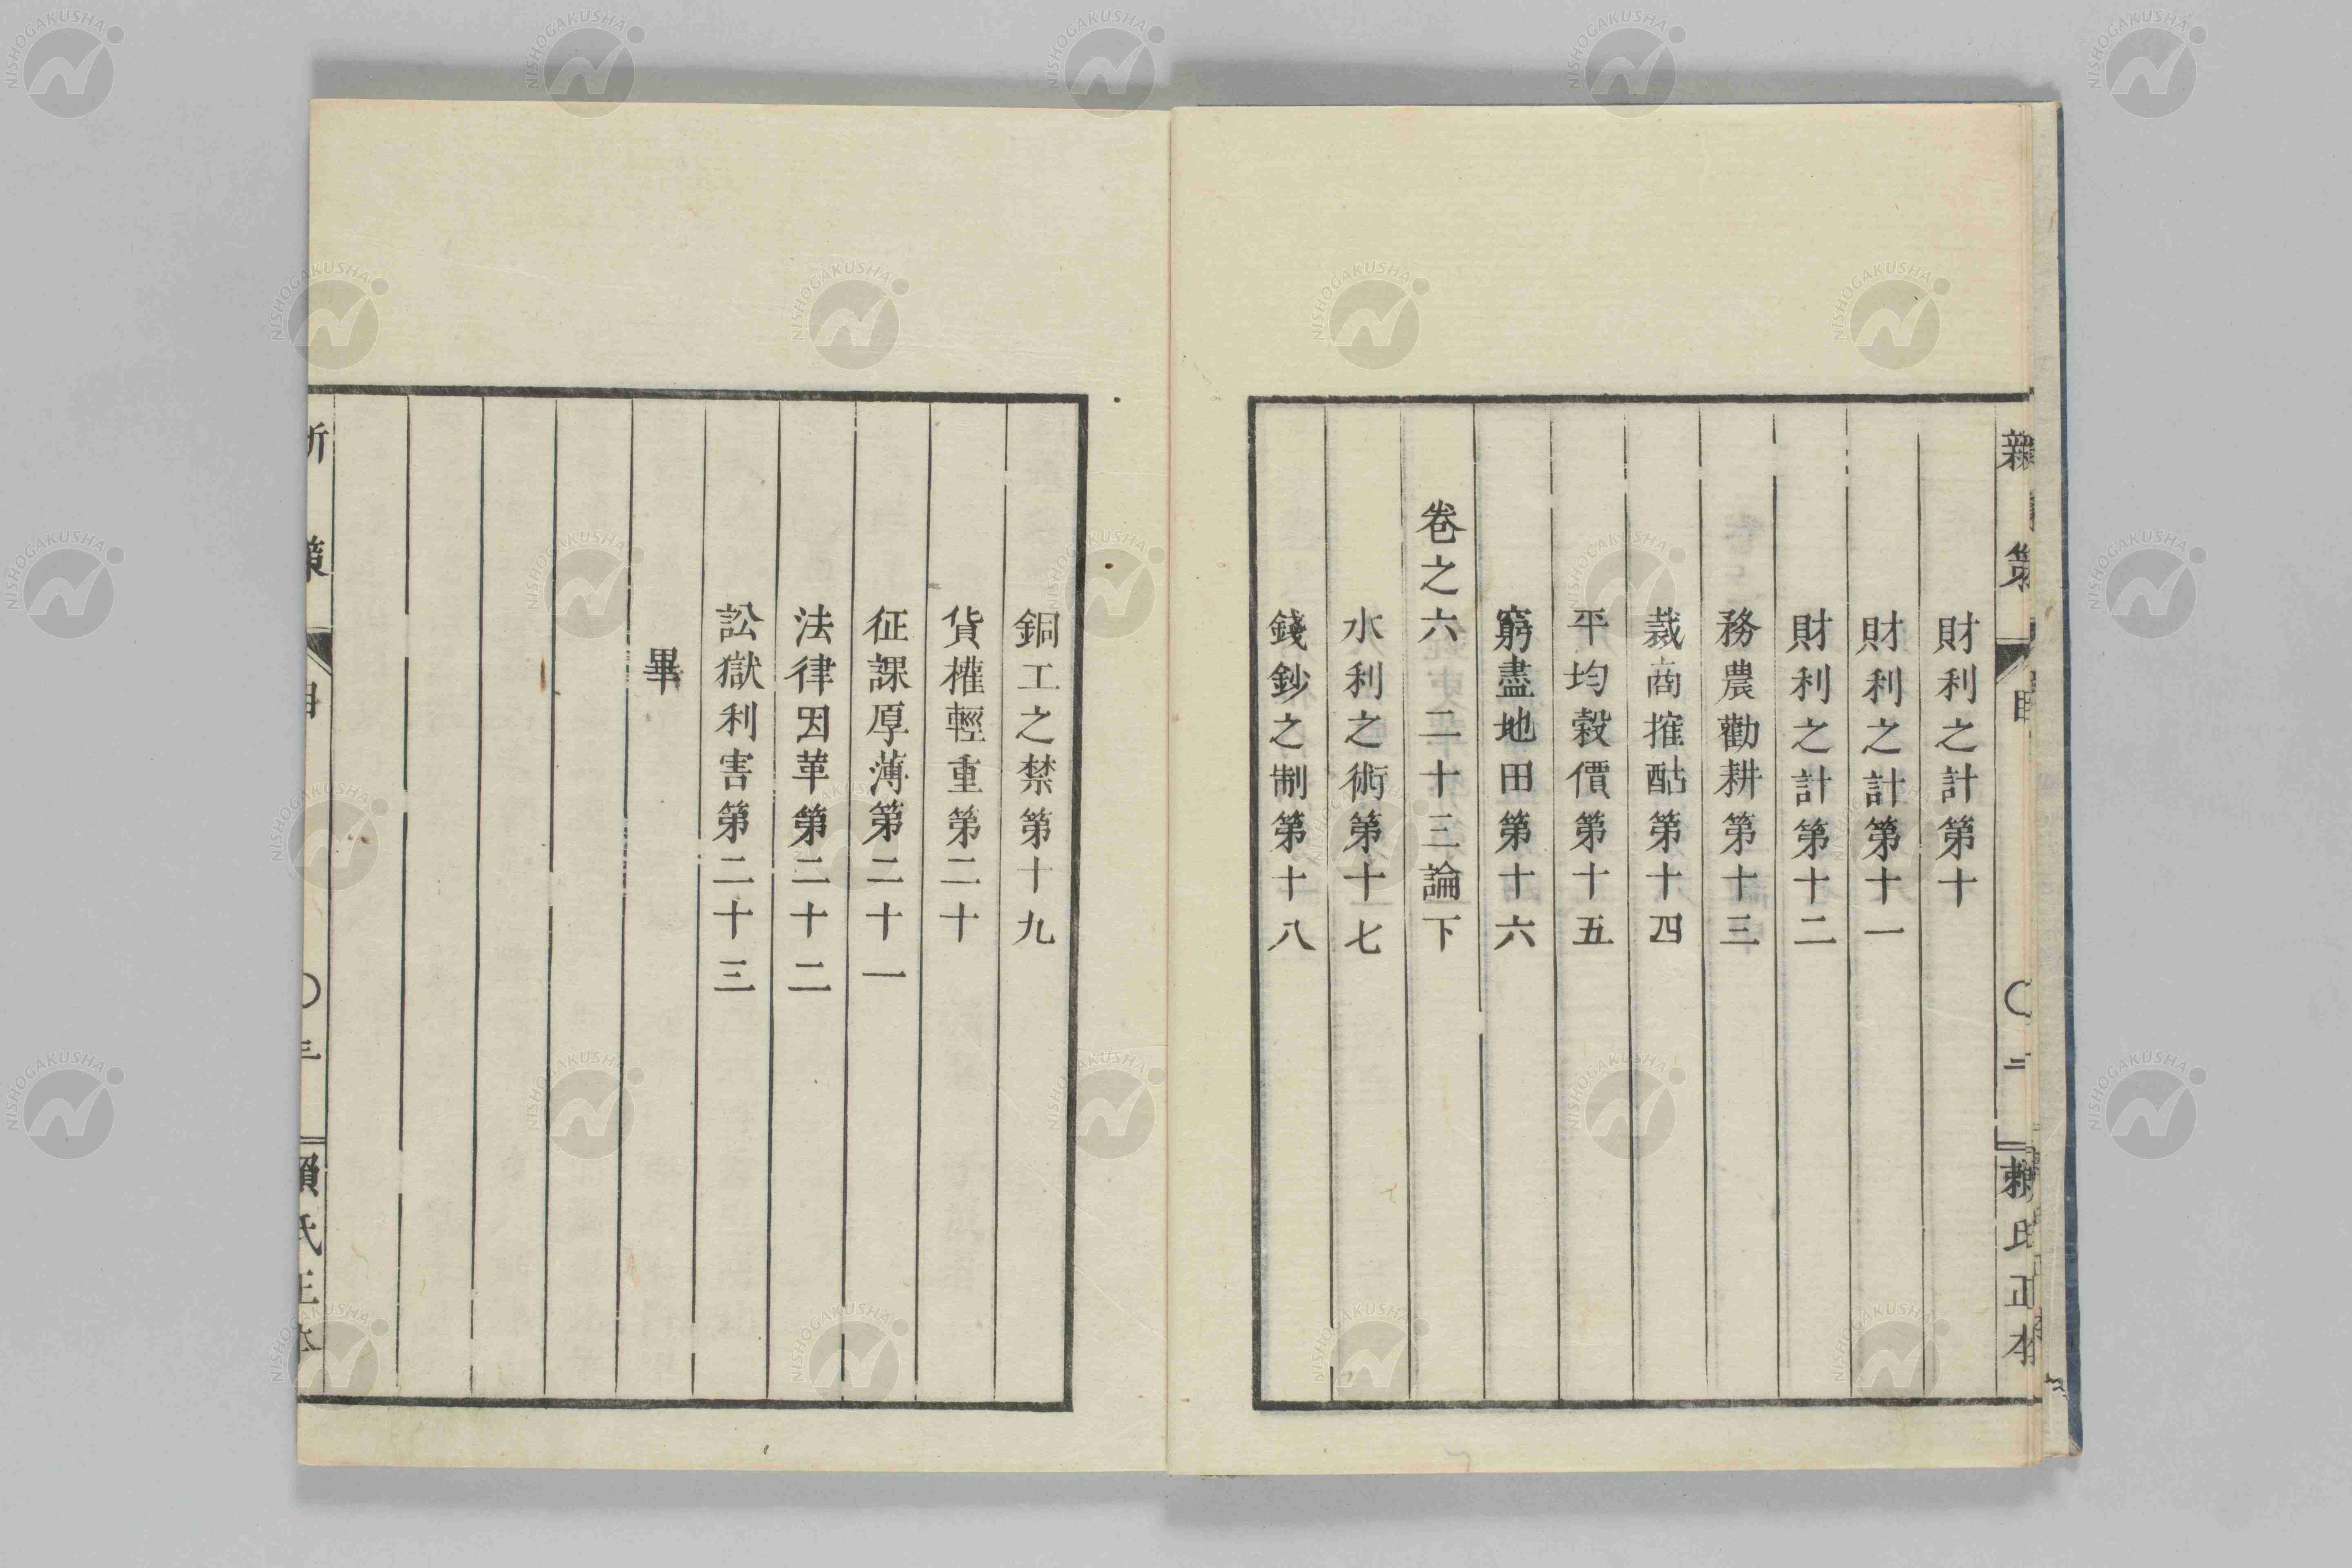 財利之計第十
財利之計第十一
財利之計第十二
務農勸耕第十三
裁商搉酤第十四
平均穀價第十五
窮盡地田第十六
卷之六 二十三論下
水利之術第十七
錢鈔之制第十八
銅工之禁第十九
貨權輕重第二十
征課厚薄第二十一
法律因革第二十二
訟獄利害第二十三
畢
新策 目 〇二 賴氏正本
新策 目 〇三 賴氏正本
NISHOGAKUSHA